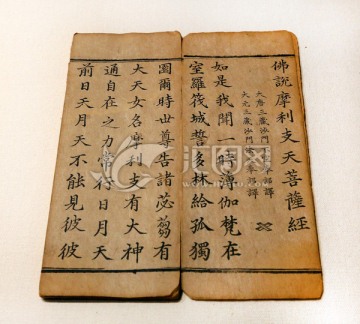 佛說摩利支天菩薩經
如是我聞一時薄伽梵在
室羅筏城誓多林給孤獨
園爾時世尊告諸苾芻有
大天女名摩利支有大神
通自在之力常行日月天
前日天月天不能見彼彼